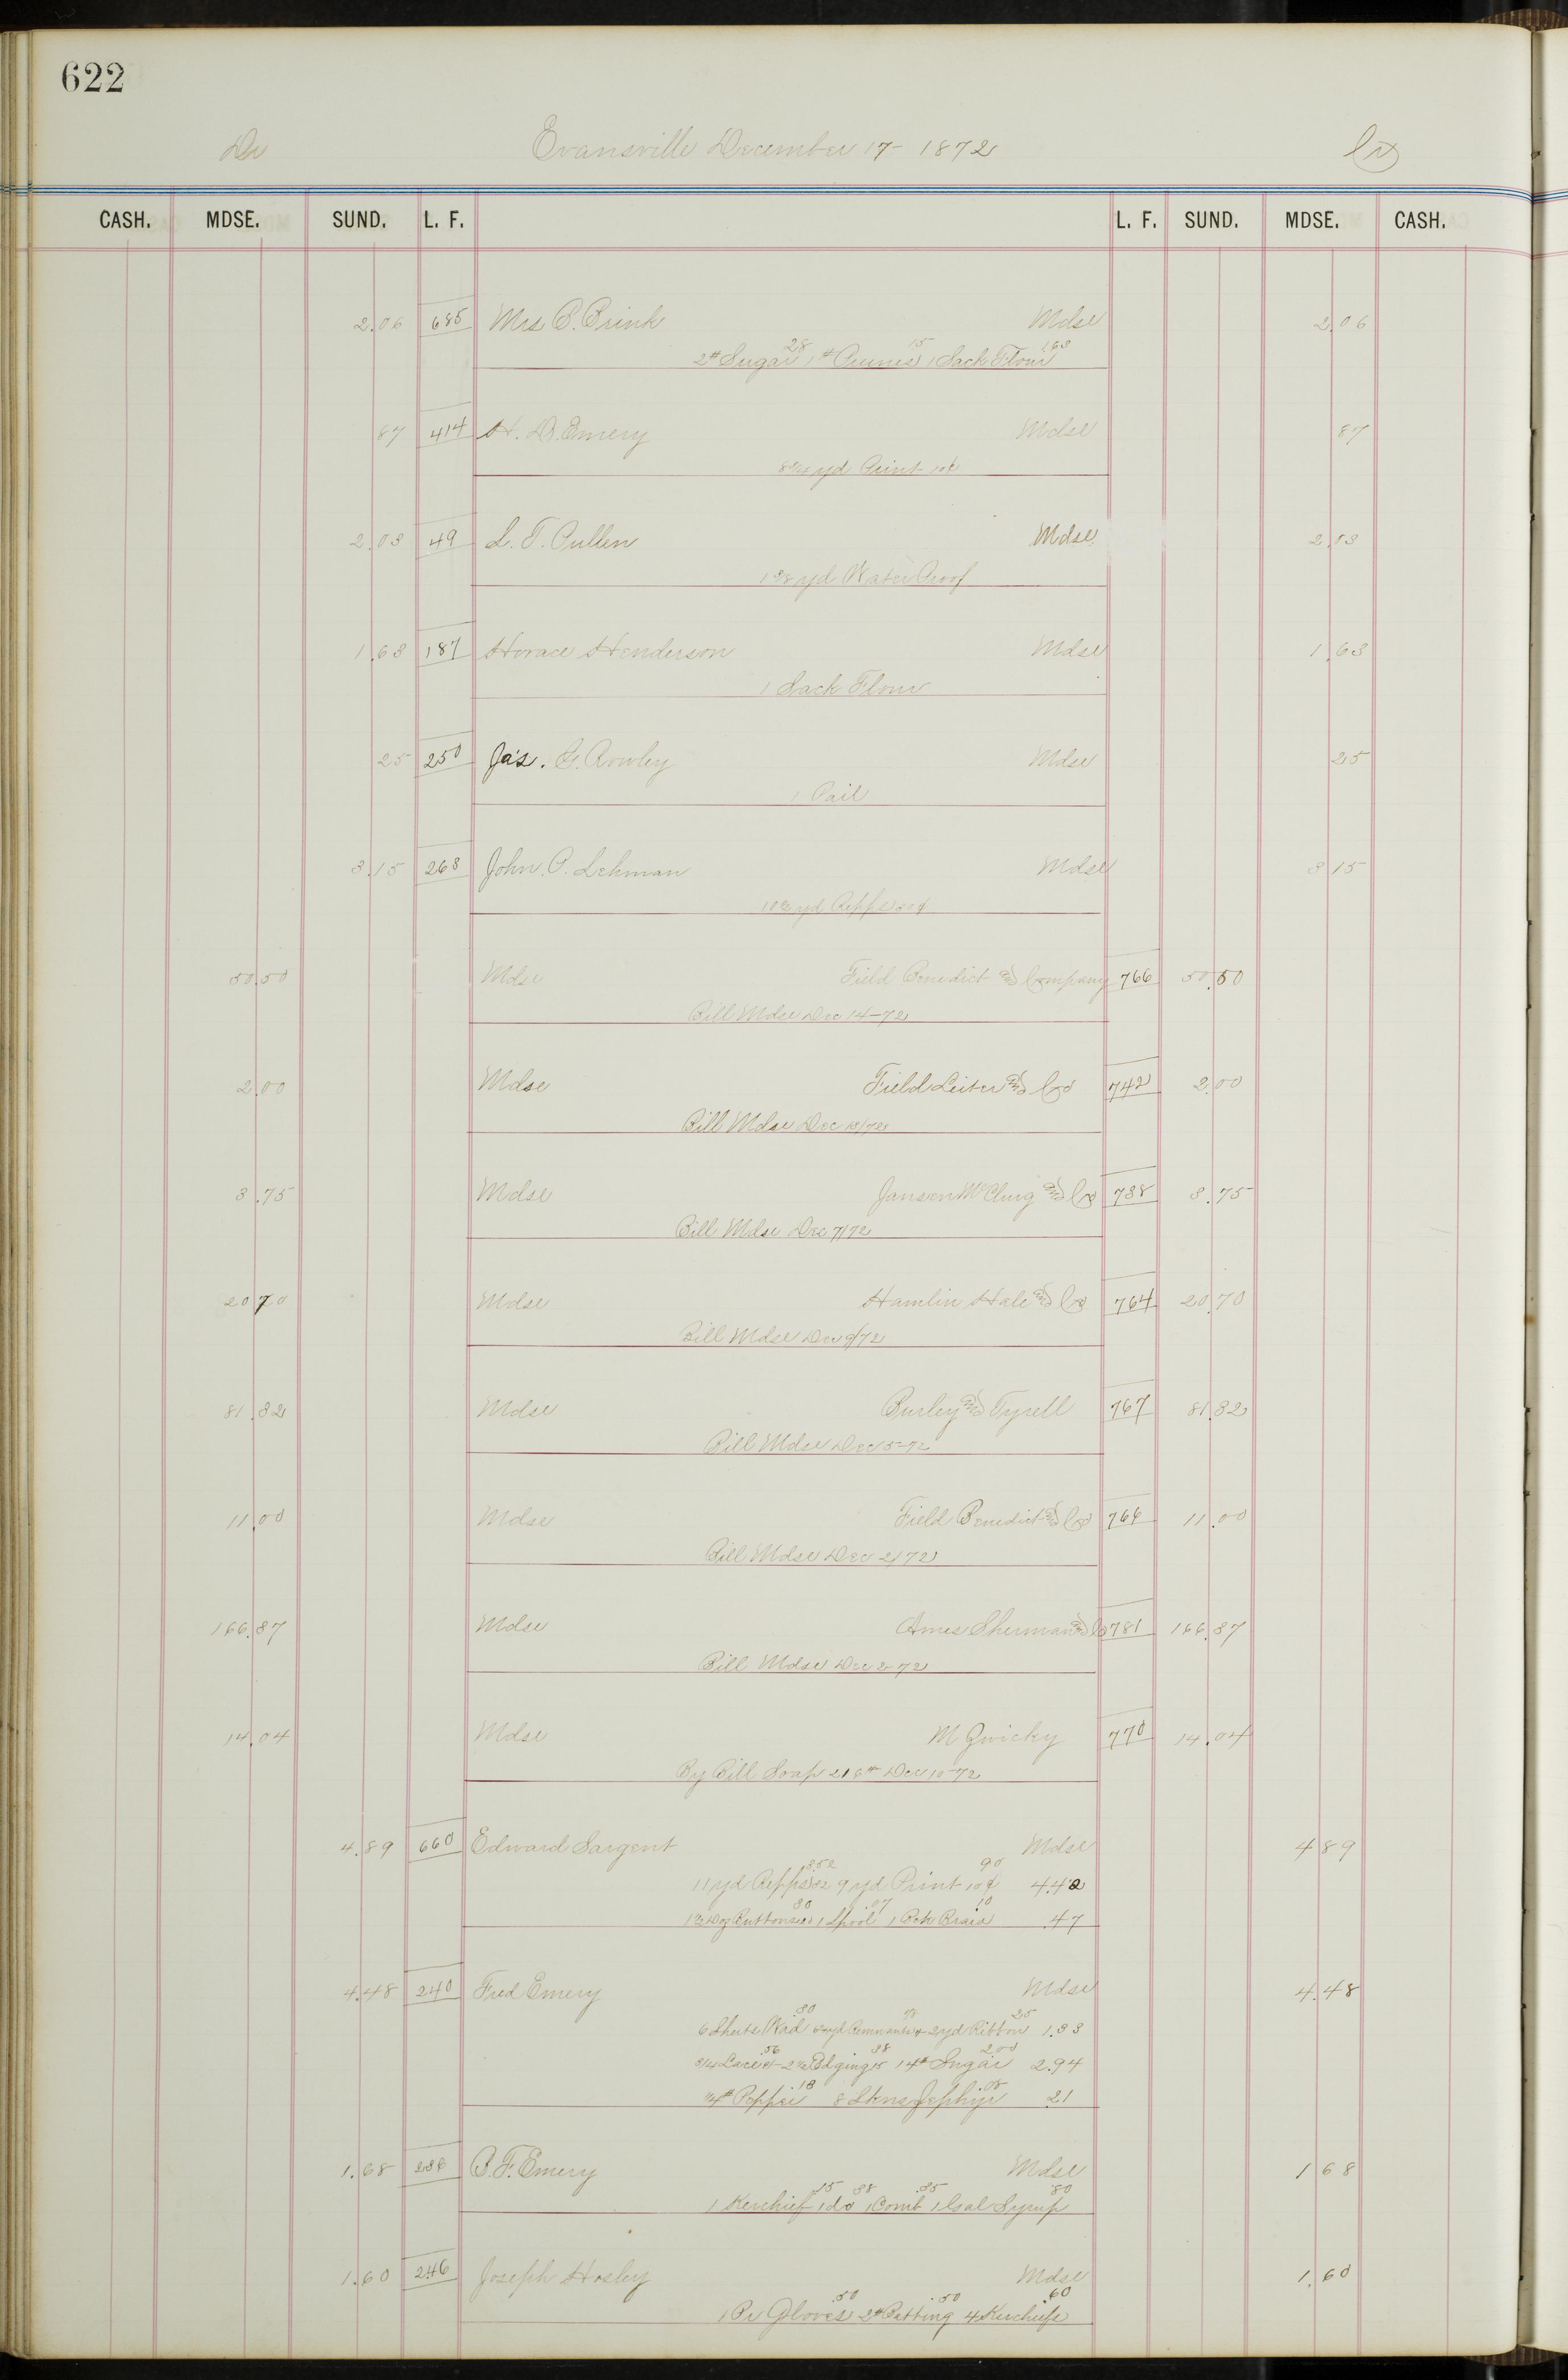 622
Dr Evansville December 17- 1872 Cr
CASH. MDSE. SUND. L. F. L. F. SUND. MDSE. CASH.
2.06 685 Mrs B. Brink Mdse 2.06
28 15 1.63
2# Sugar 1# Prunes 1 Sack Flour
87 414 H. D. Emery Mdse 87
8 3/4 yd Print 10¢
2.03 49 L. T. Pullen Mdse 2.03
yd Water Proof
1.63 187 Horace Henderson Mdse 1.63
1 Sack Flour
25 250 Jas. G. Rowley Mdse 25
1 Pail
3.15 263 John. P. Lehman Mdse 3 15
10 1/2 yd Repps 30¢
50.50 Mdse Field Benedict and Company 766 50.50
Bill Mdse Dec 14-72
2.00 Mdse Field Leiter and Co 742 2.00
Bill Mdse Dec 13/72
3.75 Mdse Janson McClurg and Co 738 3.75
Bill Mdse Dec 7/72
20 70 Mdse Hamlin Hale and Co 764 20.70
Bill Mdse Dec 9/72
81.32 Mdse Burley and Tyrell 767 81.32
Bill Mdse Dec 5-72
11.00 Mdse Field Benedict and Co 766 11.00
Bill Mdse Dec 2/72
166.87 Mdse Ames Sherman and Co 781 166.87
Bill Mdse Dec 2-72
14.04 Mdse M Zwicky 770 14.04
By Bill Soap 216# Dec 10-72
4.89 660 Edward Sargent Mdse 4 89
3.52 90
11 yd Repps 32 9 yd Print 10¢ 4.42
30 .07 10
1 1/2 Doz Buttons 20 1 Spool 1 Pck Braid .47
4.48 240 Fred Emery Mdse 4.48
.30 25
6 Sheets Wad yd Remnants 2 yd Ribbon 1.33
.56 38 2.00
Lace Edging 15 14# Sugar 2.94
.13 .08
1/4# Pepper 8 Skns Zephyr 21
1.68 236 B. F. Emery Mdse 1 68
.15 38 .35 80
1 Kerchief 1 do 1 Comb 1 Gal Syrup
1.60 246 Joseph Hosley Mdse 1.60
.50 .50 .60
1 Pr Gloves 2# Batting 4 Kerchiefs